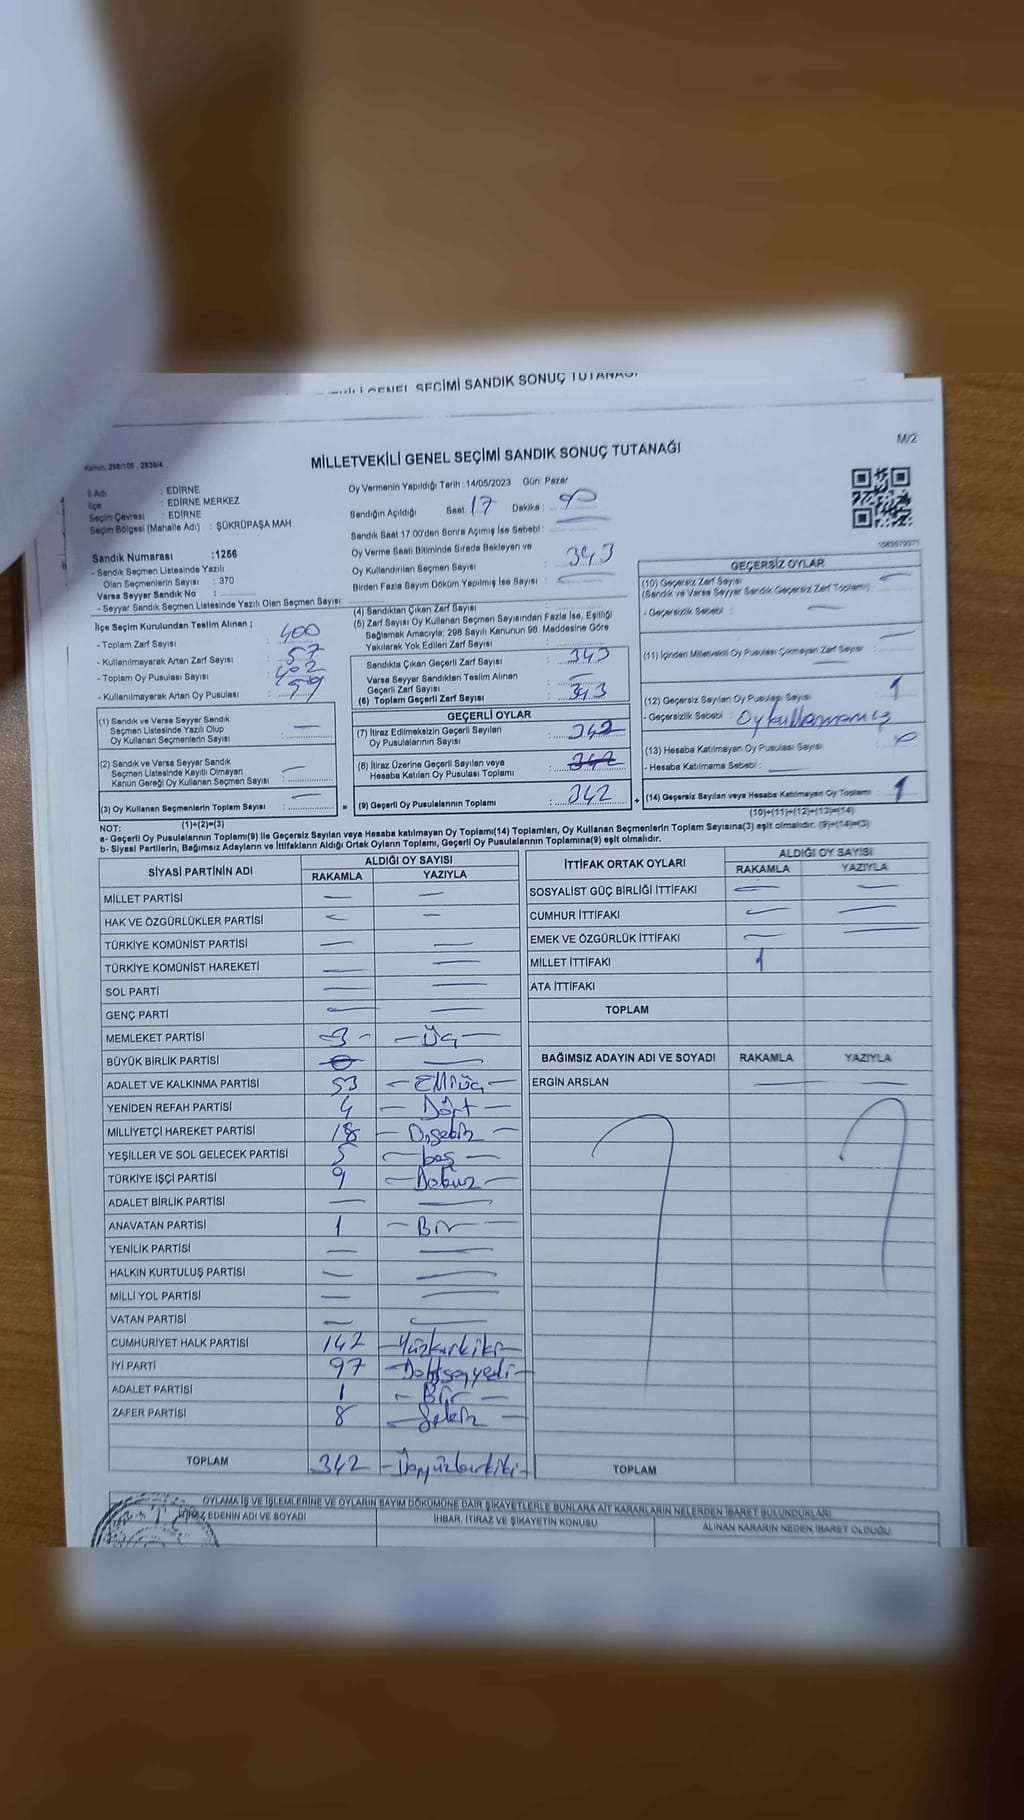 MİLLETVEKİLİ GENEL SEÇİMİ SANDIK SONUÇ TUTANAĞI
M/2
Kanun, 298/105, 2839/4
MİLLETVEKİLİ GENEL SEÇİMİ SANDIK SONUÇ TUTANAĞI
İl Adı : EDİRNE
İlçe : EDİRNE MERKEZ
Seçim Çevresi : EDİRNE
Seçim Bölgesi (Mahalle Adı) : ŞÜKRÜPAŞA MAH
Oy Vermenin Yapıldığı Tarih :14/05/2023 Gün: Pazar
Sandığın Açıldığı Saat : 17 Dakika :
Sandık Saat 17.00'den Sonra Açımış İse Sebebi :
Oy Verme Saati Bitiminde Sırada Bekleyen ve
Oy Kullandırılan Seçmen Sayısı : 343
Birden Fazla Sayım Döküm Yapılmış İse Sayısı :
Sandık Numarası :1256
- Sandık Seçmen Listesinde Yazılı
Olan Seçmenlerin Sayısı : 370
Varsa Seyyar Sandık No :
- Seyyar Sandık Seçmen Listesinde Yazılı Olan Seçmen Sayısı:
İlçe Seçim Kurulundan Teslim Alınan ;
- Toplam Zarf Sayısı : 400
- Kullanılmayarak Artan Zarf Sayısı : 57
- Toplam Oy Pusulası Sayısı : 402
- Kullanılmayarak Artan Oy Pusulası : 59
(1) Sandık ve Varsa Seyyar Sandık
Seçmen Listesinde Yazılı Olup
Oy Kullanan Seçmenlerin Sayısı : —
(2) Sandık ve Varsa Seyyar Sandık
Seçmen Listesinde Kayıtlı Olmayan
Kanun Gereği Oy Kullanan Seçmen Sayısı : —
(3) Oy Kullanan Seçmenlerin Toplam Sayısı : —
(1)+(2)=(3)
(4) Sandıktan Çıkan Zarf Sayısı :
(5) Zarf Sayısı Oy Kullanan Seçmen Sayısından Fazla İse, Eşitliği
Sağlamak Amacıyla; 298 Sayılı Kanunun 98. Maddesine Göre
Yakılarak Yok Edilen Zarf Sayısı :
Sandıkla Çıkan Geçerli Zarf Sayısı : 343
Varsa Seyyar Sandıktan Teslim Alınan
Geçerli Zarf Sayısı : —
(6) Toplam Geçerli Zarf Sayısı : 343
GEÇERLİ OYLAR
(7) İtiraz Edilmeksizin Geçerli Sayılan
Oy Pusulalarının Sayısı : 342
(8) İtiraz Üzerine Geçerli Sayılan veya
Hesaba Katılan Oy Pusulası Toplamı : 342
= (9) Geçerli Oy Pusulalarının Toplamı : 342 +
GEÇERSİZ OYLAR
(10) Geçersiz Zarf Sayısı
(Sandık ve Varsa Seyyar Sandık Geçersiz Zarf Toplamı) : —
- Geçersizlik Sebebi : —
(11) İçinden Milletvekili Oy Pusulası Çıkmayan Zarf Sayısı : —
(12) Geçersiz Sayılan Oy Pusulası Sayısı : 1
- Geçersizlik Sebebi : Oy kullanmamış
(13) Hesaba Katılmayan Oy Pusulası Sayısı :
- Hesaba Katılmama Sebebi : —
(14) Geçersiz Sayılan veya Hesaba Katılmayan Oy Toplamı : 1
(10)+(11)+(12)+(13)=(14)
NOT:
a- Geçerli Oy Pusulalarının Toplamı(9) ile Geçersiz Sayılan veya Hesaba katılmayan Oy Toplamı(14) Toplamları, Oy Kullanan Seçmenlerin Toplam Sayısına(3) eşit olmalıdır. (9)+(14)=(3)
b- Siyasi Partilerin, Bağımsız Adayların ve İttifakların Aldığı Ortak Oyların Toplamı, Geçerli Oy Pusulalarının Toplamına(9) eşit olmalıdır.
SİYASİ PARTİNİN ADI ALDIĞI OY SAYISI
RAKAMLA YAZIYLA
MİLLET PARTİSİ — —
HAK VE ÖZGÜRLÜKLER PARTİSİ — —
TÜRKİYE KOMÜNİST PARTİSİ — —
TÜRKİYE KOMÜNİST HAREKETİ — —
SOL PARTİ — —
GENÇ PARTİ — —
MEMLEKET PARTİSİ 3 - — Üç —
BÜYÜK BİRLİK PARTİSİ —
ADALET VE KALKINMA PARTİSİ 53 — Elliüç —
YENİDEN REFAH PARTİSİ 4 — Dört —
MİLLİYETÇİ HAREKET PARTİSİ 18 — Onsekiz —
YEŞİLLER VE SOL GELECEK PARTİSİ 5 — beş —
TÜRKİYE İŞÇİ PARTİSİ 9 — Dokuz —
ADALET BİRLİK PARTİSİ — —
ANAVATAN PARTİSİ 1 — Bir —
YENİLİK PARTİSİ — —
HALKIN KURTULUŞ PARTİSİ — —
MİLLİ YOL PARTİSİ — —
VATAN PARTİSİ — —
CUMHURİYET HALK PARTİSİ 142 — Yüzkırkiki —
İYİ PARTİ 97 — Doksanyedi —
ADALET PARTİSİ 1 — Bir —
ZAFER PARTİSİ 8 — Sekiz —
TOPLAM 342 — Üçyüzkırkiki —
İTTİFAK ORTAK OYLARI ALDIĞI OY SAYISI
RAKAMLA YAZIYLA
SOSYALİST GÜÇ BİRLİĞİ İTTİFAKI — —
CUMHUR İTTİFAKI — —
EMEK VE ÖZGÜRLÜK İTTİFAKI — —
MİLLET İTTİFAKI 1
ATA İTTİFAKI
TOPLAM
BAĞIMSIZ ADAYIN ADI VE SOYADI RAKAMLA YAZIYLA
ERGİN ARSLAN — —
TOPLAM
OYLAMA İŞ VE İŞLEMLERİNE VE OYLARIN SAYIM DÖKÜMÜNE DAİR ŞİKAYETLERLE BUNLARA AİT KARARLARIN NELERDEN İBARET BULUNDUKLARI
EDENİN ADI VE SOYADI
İHBAR, İTİRAZ VE ŞİKAYETİN KONUSU
ALINAN KARARIN NEDEN İBARET OLDUĞU